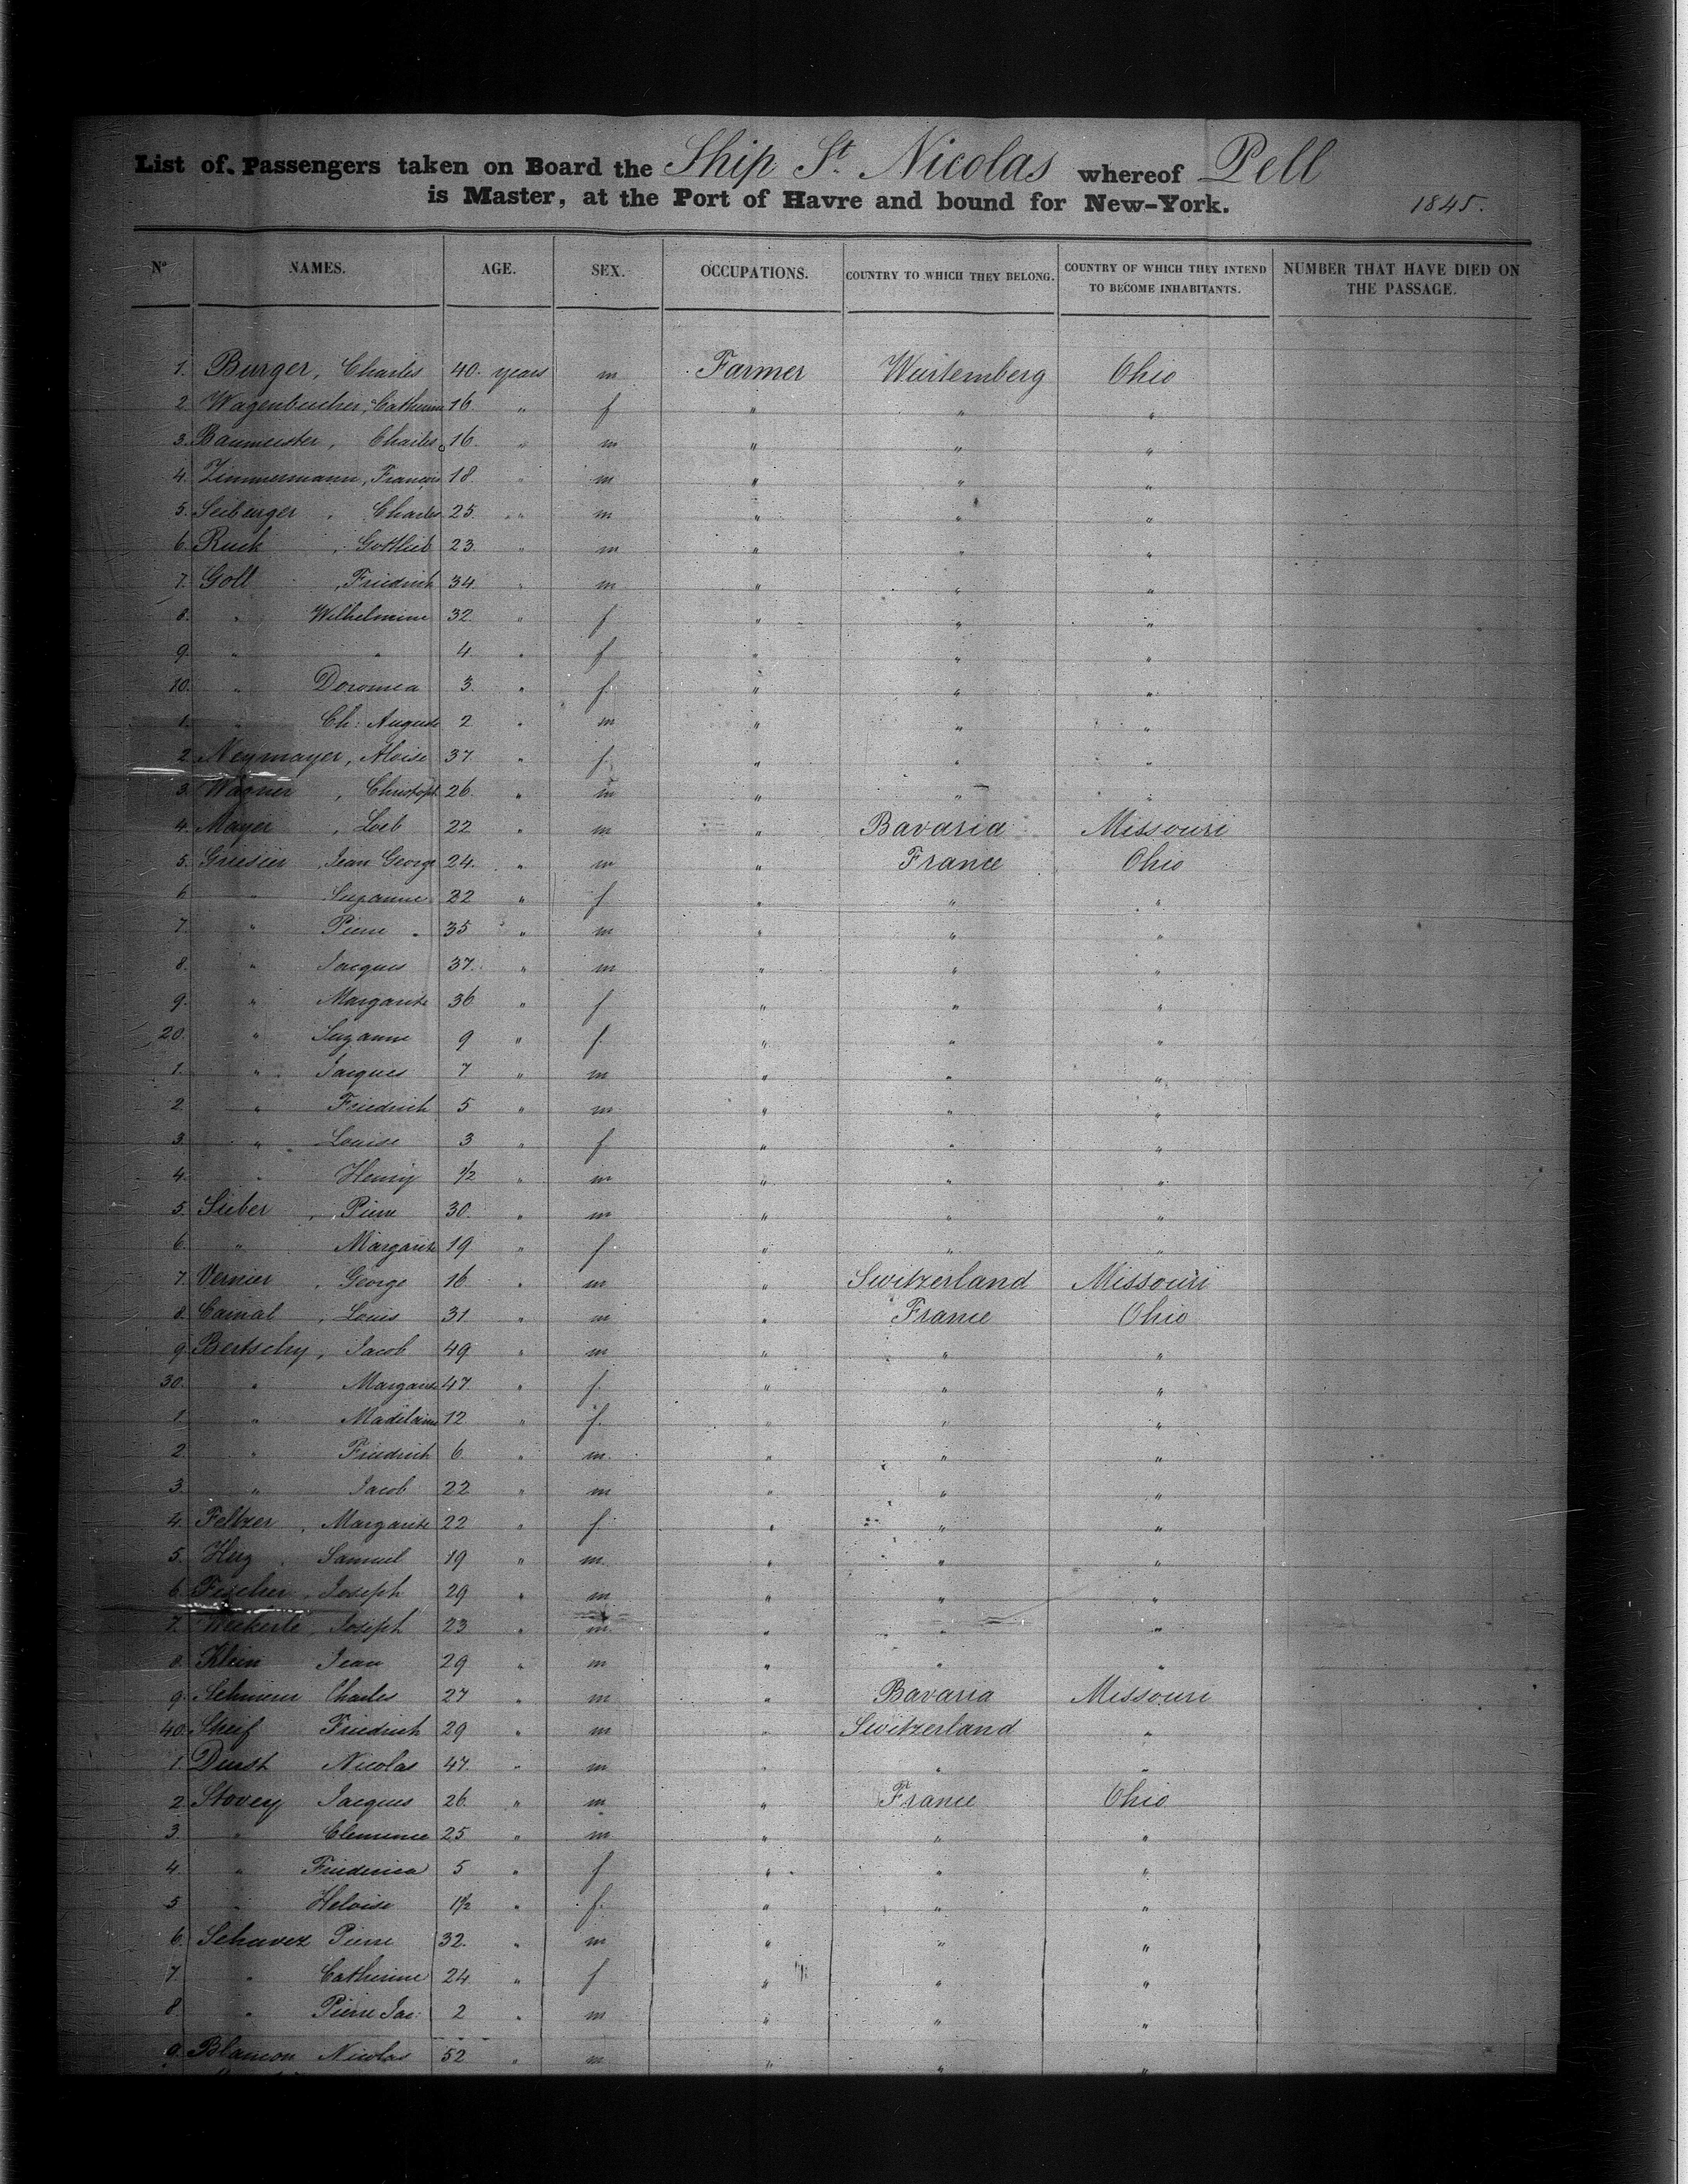 List of Passengers taken on Board the Ship St. Nicolas whereof Pell
is Master, at the Port of Havre and bound for New-York. 1845.
No NAMES. AGE. SEX. OCCUPATIONS. COUNTRY TO WHICH THEY BELONG. COUNTRY OF WHICH THEY INTEND TO BECOME INHABITANTS. NUMBER THAT HAVE DIED ON THE PASSAGE.
1. Burger, Charles 40. years m Farmer Würtemberg Ohio
2 Wagenbucher, Catherine 16. " f " " "
3. Baumeister, Charles 16. " m " " "
4. Zimmermann, François 18. " m " " "
5. Seiburger, Charles 25. " m " " "
6. Ruck, Gottlieb 23. " m " " "
7. Goll, Friedrich 34. " m " " "
8. " Wilhelmine 32. " f " " "
9. " " 4. " f " " "
10. " 3. " f " " "
1. " Ch: Auguste 2. " m " " "
2 Neymayer, Aloise 37. " f " " "
3. Wagner, Christoph 26. " m " " "
4. Mayer, Loeb 22 " m " Bavaria Missouri
5. Griesier, Jean George 24. " m " France Ohio
6 " Suzanne 32 " f " " "
7. " Pierre 35 " m " " "
8. " Jacques 37. " m " " "
9. " Margarite 36 " f " " "
20. " Suzanne 9 " f " " "
1. " Jacques 7 " m " " "
2. " Friedrich 5 " m " " "
3. " Louise 3 " f " " "
4. " Henry 1/2 " m " " "
5. Sieber, Pierre 30. " m " " "
6. " Margarite 19 " f " " "
7. Vernier, George 16 " m " Switzerland Missouri
8. Cainal, Louis 31 " m " France Ohio
9. Bertschy, Jacob 49 " m " " "
30. " Margarite 47. " f " " "
1. " Madelaine 12 " f " " "
2. " Friedrich 6. " m " " "
3. " Jacob 22 " m " " "
4. Feltzer, Margarite 22 " f " " "
5. Hug, Samuel 19 " m " " "
6. Fischer, Joseph 29 " m " " "
7. Weckerle, Joseph 23 " m " " "
8. Klein Jean 29 " m " " "
9. Charles 27 " m " Bavaria Missouri
40. Friedrich 29 " m " Switzerland "
1. Durst Nicolas 47. " m " " "
2. Stovery Jacques 26. " m " France Ohio
3. " Clemence 25 " m " " "
4. " Friederica 5 " f " " "
5 " Heloise 1 1/2 " f " " "
6. Schavez Pierre 32. " m " " "
7 " Catherine 24 " f " " "
8. " Pierre Jac: 2 " m " " "
9. Blancon Nicolas 52 " m " " "